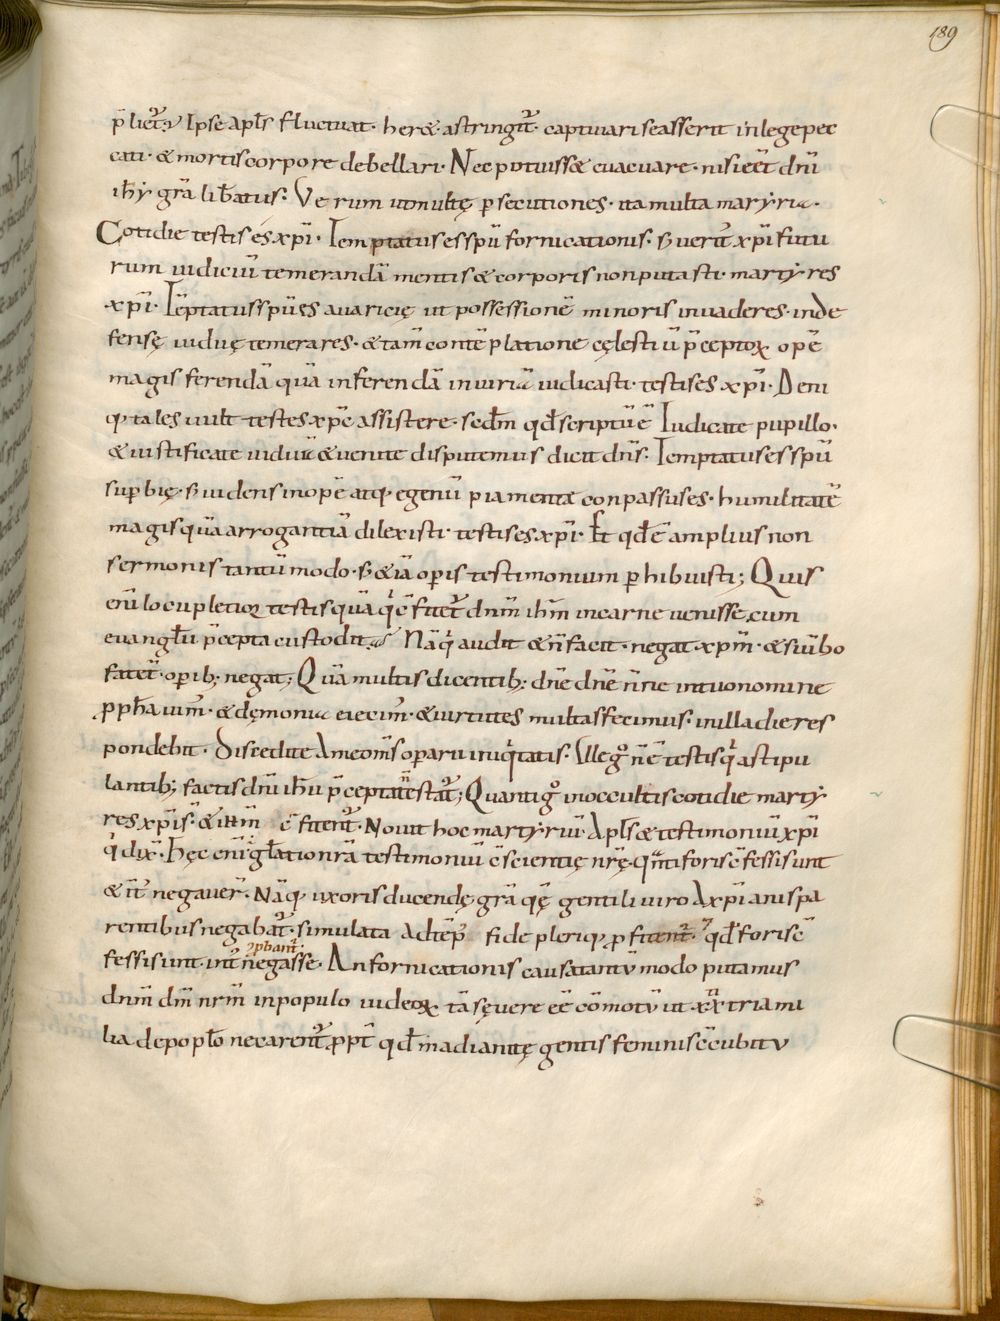 189
p̄liet᷒ ⁊ Ipse apl̄s fluctuat · heret · astringit᷒ · captiuari se asserit in lege pec
cati · & mortis corpore debellari · Nec potuisse euacuare · nisi eēt dnī
ihȳ grā lib̄atus · Verum ut multę p̄secutiones · ita multa martẏria ·
Cotidie testis es xp̄i · Temptatus es spū fornicationis · s; uerit᷒ xp̄i futu
rum iudiciū temerandā mentis & corporis non putasti · martẏres
xp̄i · Tēptatus spū es auaricię ut possessionē minoris inuaderes · inde
fensę uiduę temerares · & tam̄ contēplatione cęlestiū p̄ceptoꝝ opē
magis ferendā quā inferendā iniuriā iudicasti · testis es xp̄i · Deni
q; tales uult testes xp̄c assistere · scdm̄ qđ scriptū ē Iudicate pupillo ·
& iustificate uiduā & uenite disputemus dicit dn̄s · Temptatus es spū
sup̄bię · s; uidens inopē atq; egenū pia mente conpassus es · humilitatē
magis quā arrogantiā dilexisti · testis es xp̄i · Et qđ ē amplius non
sermonis tantūmodo · s; & iā op̄is testimonium p̄hibuisti ; Quis
eni᷒ locupletior testis quā qi c̄fitet᷒ dnm̄ ihm̄ in carne uenisse cum
euanglīi p̄cepta custodit ; Nā qi audit & n̄ facit · negat xpm̄ · & si uībo
fatet᷒ · op̄ib; negat ; Quā multis dicentib; dnē dnē n̄ne in tuo nomine
ꝓph̄auim᷒ · & dęmonia eiecim᷒ · & uirtutes multas fecimus · in illa die res
pondebit · Discedite a me om̄s operarii iniqitatis · Ille go n̄ ē testis qi astipu
lantib; factis dnī ihū p̄cepta testat᷒ ; Quanti go in occultis cotidie martẏ
res xp̄i s᷒ · & ihm̄ c̄fitent᷒ · Nouit hoc martẏriū · Apl̄s & testimoniū xp̄i
qi dix᷒ · Hęc eni᷒ gl̄atio nrā testimoniū c̄scientię nrę · qanti foris c̄fessi sunt
& int᷒ negauer᷒ · Nā q; uxoris ducendę grā qę gentili uiro a xp̄ianis pa
rentibus negabat᷒ · simulata ad tēp᷒ fide pleriq; ꝓfitent᷒ · qđ foris c̄
ꝓbant᷒
fessi sunt · int᷒ negasse · An fornicationis causa tantū modo putamus
dnm̄ dm̄ nrm̄ in populo iudeoꝝ tā sęuere eē cōmotū ut xx tria mi
lia de popl̄o necarent᷒ ꝓpt᷒ qđ madianitę gentis feminis c̄cubitu